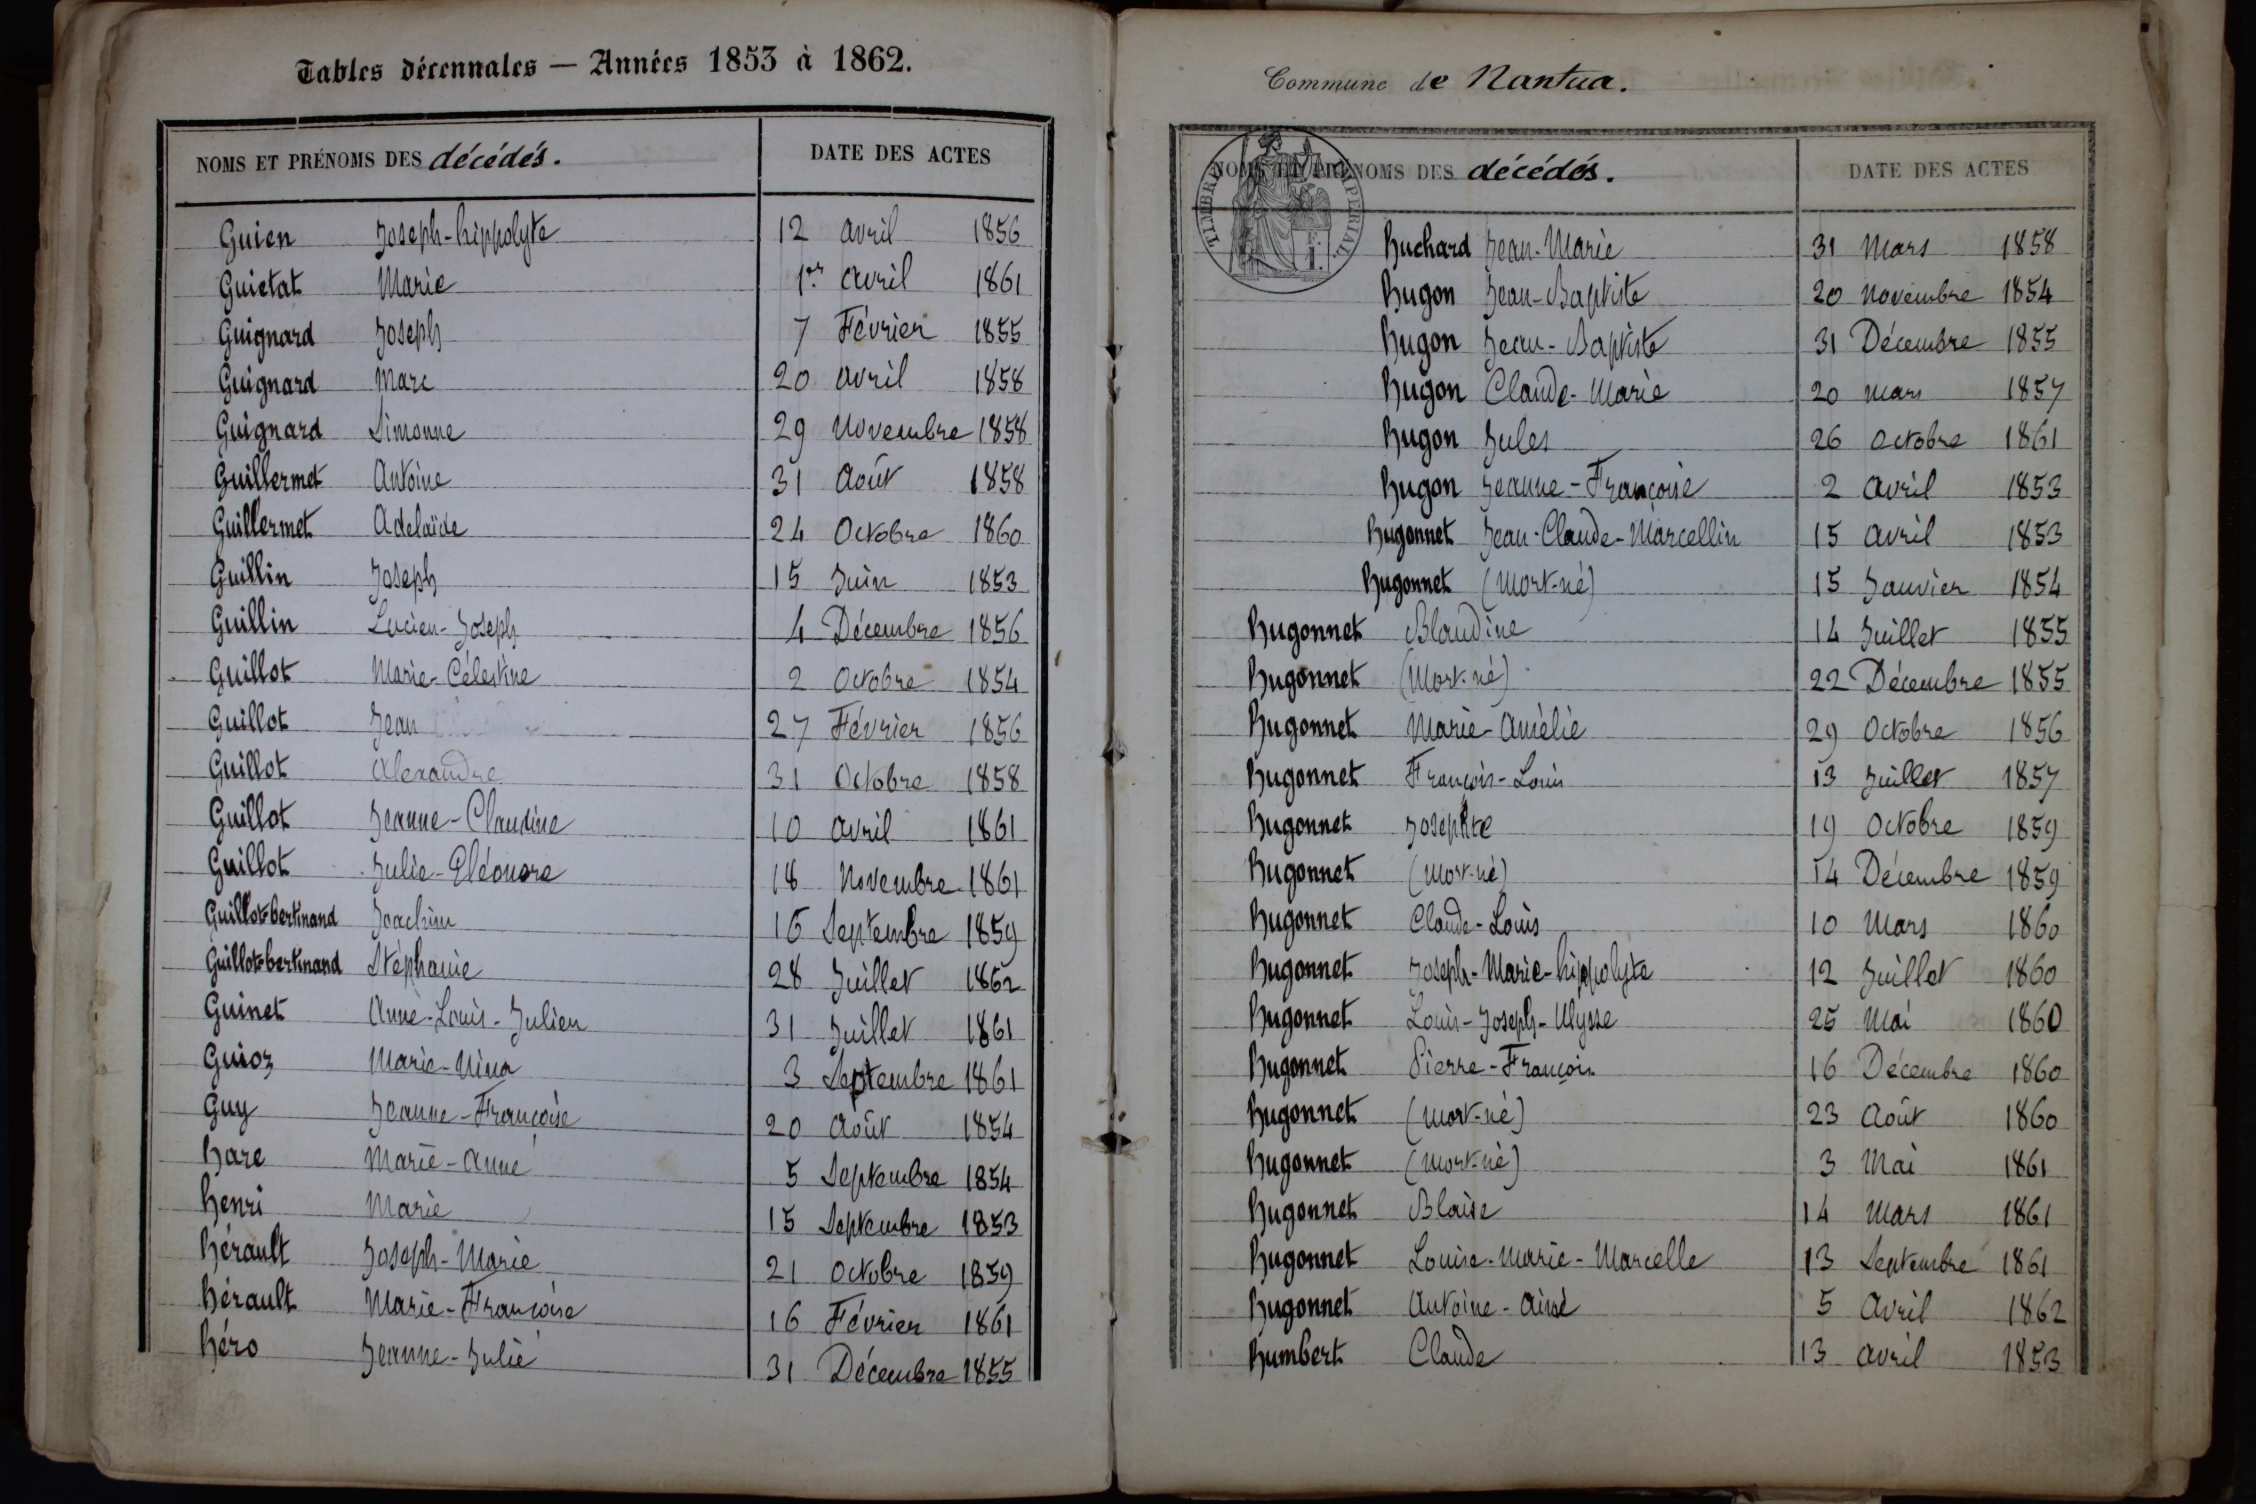 Tables décennales — Années 1853 à 1862.
NOMS ET PRÉNOMS DES décédés. DATE DES ACTES
Guien Joseph-hippolyte 12 avril 1856
Guietat Marie 1er avril 1861
Guignard Joseph 7 Février 1855
Guignard Marc 20 avril 1858
Guignard Simonne 29 Novembre 1858
Guillermet Antoine 31 Août 1858
Guillermet Adelaïde 24 Octobre 1860
Guillin Joseph 15 Juin 1853
Guillin Lucien-Joseph 4 Décembre 1856
Guillot Marie-Célestine 2 Octobre 1854
Guillot Jean 27 Février 1856
Guillot Alexandre 31 Octobre 1858
Guillot Jeanne-Claudine 10 avril 1861
Guillot Julie-Eléonore 18 Novembre 1861
Guillot-bertinand Joachim 16 Septembre 1859
Guillot-bertinand Stéphanie 28 Juillet 1862
Guinet Anne-Louis-Julien 31 Juillet 1861
Guioz Marie-Nina 3 Septembre 1861
Guy Jeanne-Françoise 20 Août 1854
hare Marie-Anne 5 Septembre 1854
henri Marie 15 Septembre 1853
hérault Joseph-Marie 21 Octobre 1859
hérault Marie-Françoise 16 Février 1861
héro Jeanne-Julie 31 Décembre 1855
Commune de Nantua.
NOMS ET PRÉNOMS DES décédés. DATE DES ACTES
TIMBRE IMPERIAL
huchard Jean-Marie 31 Mars 1858
hugon Jean-Baptiste 20 Novembre 1854
hugon Jean-Baptiste 31 Décembre 1855
hugon Claude-Marie 20 Mars 1857
hugon Jules 26 Octobre 1861
hugon Jeanne-Françoise 2 Avril 1853
hugonnet Jean-Claude-Marcellin 15 avril 1853
hugonnet (Mort-né) 15 Janvier 1854
hugonnet Blandine 14 Juillet 1855
hugonnet (Mort-né) 22 Décembre 1855
hugonnet Marie-Amélie 29 Octobre 1856
hugonnet François-Louis 13 Juillet 1857
hugonnet Josephte 19 Octobre 1859
hugonnet (Mort-né) 14 Décembre 1859
hugonnet Claude-Louis 10 Mars 1860
hugonnet Joseph-Marie-hippolyte 12 Juillet 1860
hugonnet Louis-Joseph-Ulysse 25 Mai 1860
hugonnet Pierre-François 16 Décembre 1860
hugonnet (Mort-né) 23 Août 1860
hugonnet (Mort-né) 3 Mai 1861
hugonnet Blaise 14 Mars 1861
hugonnet Louise-Marie-Marcelle 13 Septembre 1861
hugonnet Antoine-Aimé 5 Avril 1862
humbert Claude 13 avril 1853